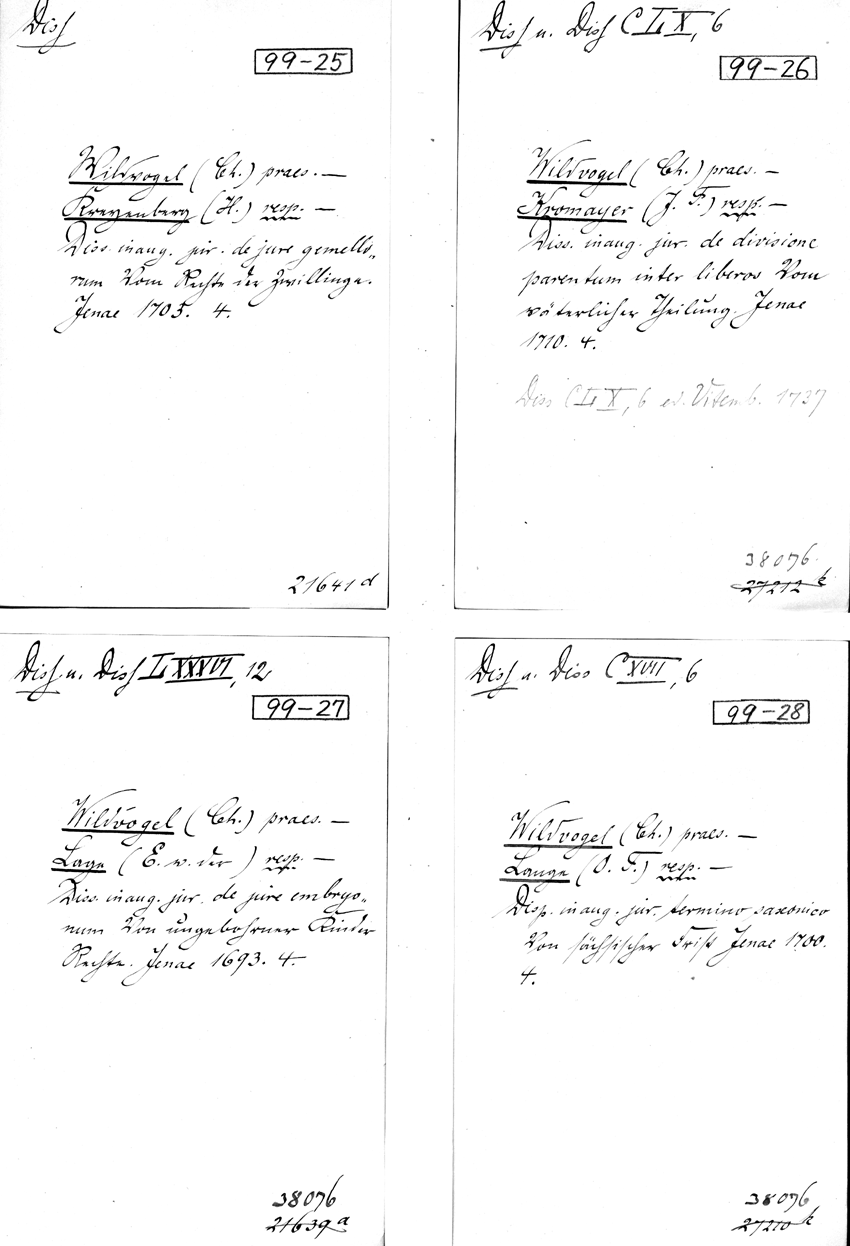 Diss
99-25
Wildvogel (Ch.) praes. —
Kreyenberg (H.) resp. —
Diss. inaug. jur. de jure gemello„
rum Vom Rechte der Zwillinge.
Jenae 1705. 4.
21641 d
Diss u. Diss CLX, 6
99-26
Wildvogel (Ch.) praes. —
Kromayer (J. F.) resp. —
Diss. inaug. jur. de divisione
parentum inter liberos Vom
väterlicher Theilung. Jenae
1710. 4.
Diss CLX, 6 ed. Vitemb. 1737
38076
27212 k
Diss u. Diss LXXXVI, 12
99-27
Wildvogel (Ch.) praes. —
Lage (E. v. der ) resp. —
Diss. inaug. jur. de jure embryo„
num Von ungebohrner Kinder
Rechte. Jenae 1693. 4.
38076
21639 a
Diss u. Diss CXVII, 6
99-28
Wildvogel (Ch.) praes. —
Lange (O. F.) resp. —
Disp. inaug. jur. termino saxonico
Von sächsischer Frist Jenae 1700.
4.
38076
27210 k